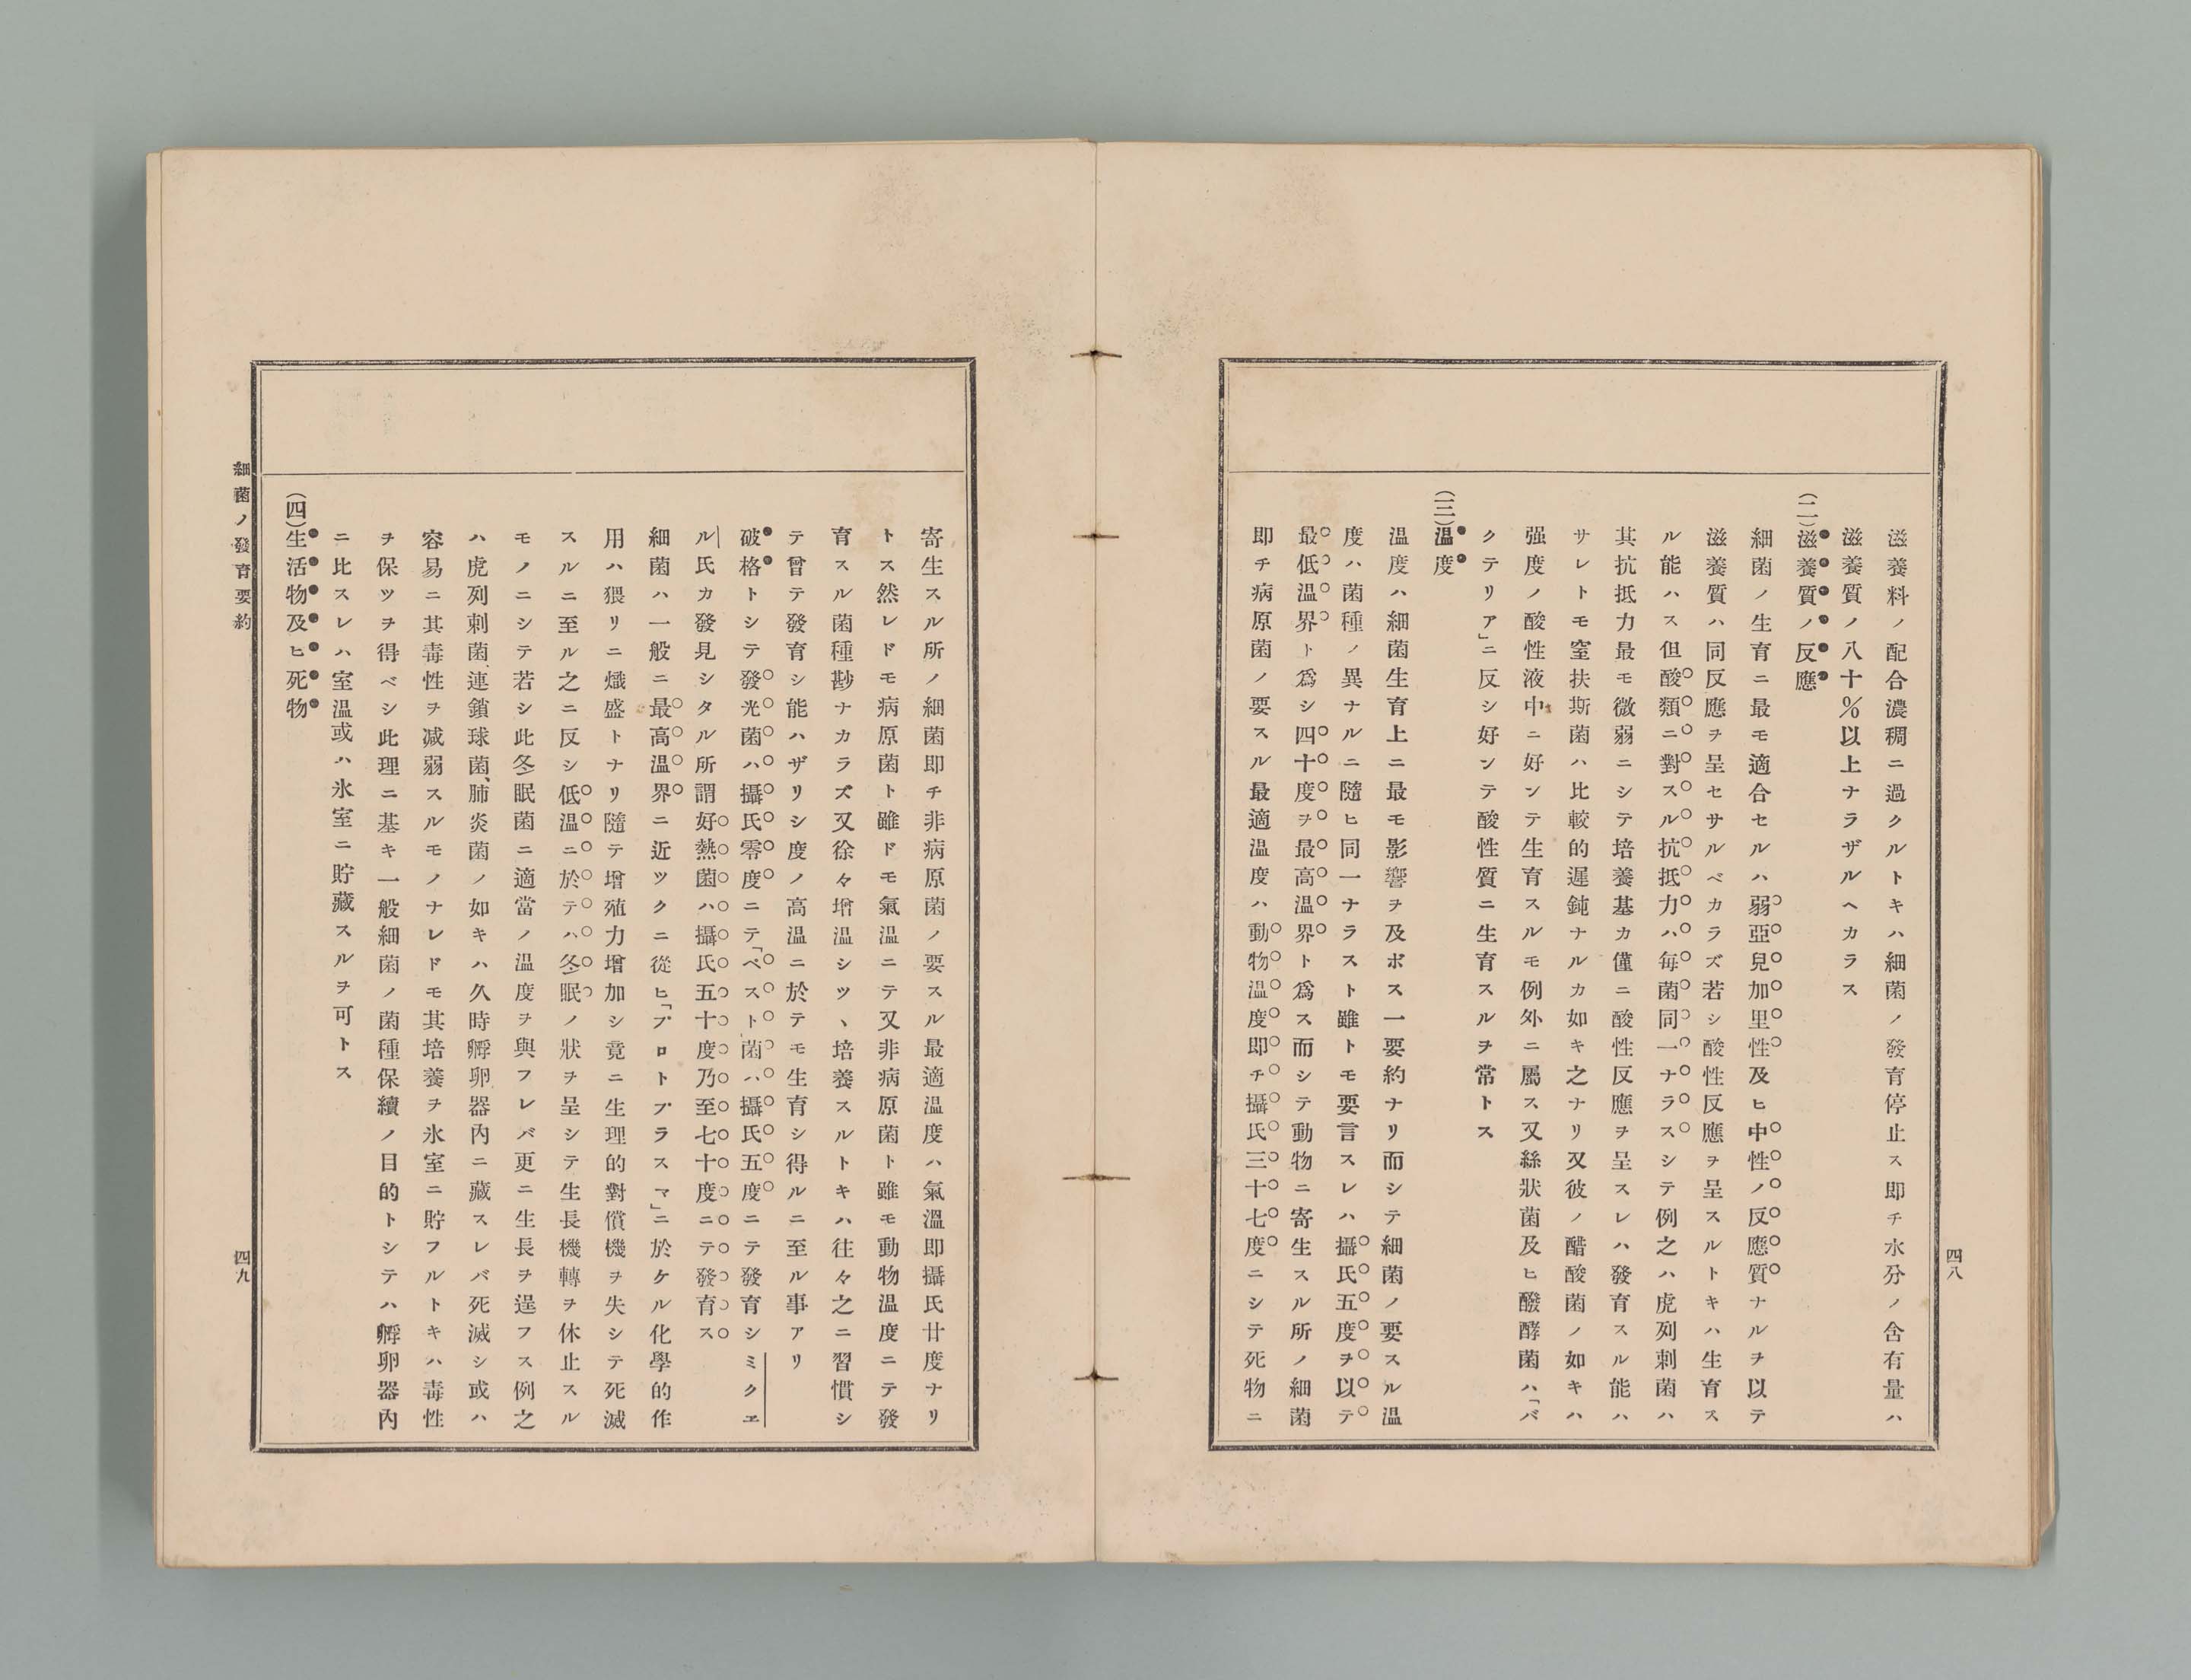 滋養料ノ配合濃稠ニ過クルトキハ細菌ノ發育停止ス即チ水分ノ含有量ハ
滋養質ノ八十%以上ナラザルヘカラス
(二)滋養質ノ反應
細菌ノ生育ニ最モ適合セルハ弱亞兒加里性及ヒ中性ノ反應質ナルヲ以テ
滋養質ハ同反應ヲ呈セサルベカラズ若シ酸性反應ヲ呈スルトキハ生育ス
ル能ハス但酸類ニ對スル抗抵力ハ毎菌同一ナラスシテ例之ハ虎列刺菌ハ
其抗抵力最モ微弱ニシテ培養基カ僅ニ酸性反應ヲ呈スレハ發育スル能ハ
サレトモ窒扶斯菌ハ比較的遲鈍ナルカ如キ之ナリ又彼ノ醋酸菌ノ如キハ
强度ノ酸性液中ニ好ンテ生育スルモ例外ニ屬ス又絲狀菌及ヒ醱酵菌ハ「バ
クテリア」ニ反シ好ンテ酸性質ニ生育スルヲ常トス
(三)温度
温度ハ細菌生育上ニ最モ影響ヲ及ボス一要約ナリ而シテ細菌ノ要スル温
度ハ菌種ノ異ナルニ隨ヒ同一ナラスト雖トモ要言スレハ攝氏五度ヲ以テ
最低温界ト爲シ四十度ヲ最高温界ト爲ス而シテ動物ニ寄生スル所ノ細菌
即チ病原菌ノ要スル最適温度ハ動物温度即チ攝氏三十七度ニシテ死物ニ
四八
寄生スル所ノ細菌即チ非病原菌ノ要スル最適温度ハ氣溫即攝氏廿度ナリ
トス然レドモ病原菌ト雖ドモ氣温ニテ又非病原菌ト雖モ動物温度ニテ發
育スル菌種尠ナカラズ又徐々增温シツヽ培養スルトキハ往々之ニ習慣シ
テ曾テ發育シ能ハザリシ度ノ高温ニ於テモ生育シ得ルニ至ル事アリ
破格トシテ發光菌ハ攝氏零度ニテ「ペスト」菌ハ攝氏五度ニテ發育シミクヱ
ル氏カ發見シタル所謂好熱菌ハ攝氏五十度乃至七十度ニテ發育ス
細菌ハ一般ニ最高温界ニ近ツクニ從ヒ「プロトプラスマ」ニ於ケル化學的作
用ハ猥リニ熾盛トナリ隨テ增殖力增加シ竟ニ生理的對償機ヲ失シテ死滅
スルニ至ル之ニ反シ低温ニ於テハ冬眠ノ狀ヲ呈シテ生長機轉ヲ休止スル
モノニシテ若シ此冬眠菌ニ適當ノ温度ヲ與フレバ更ニ生長ヲ逞フス例之
ハ虎列刺菌、連鎖球菌、肺炎菌ノ如キハ久時孵卵器內ニ藏スレバ死滅シ或ハ
容易ニ其毒性ヲ減弱スルモノナレドモ其培養ヲ氷室ニ貯フルトキハ毒性
ヲ保ツヲ得ベシ此理ニ基キ一般細菌ノ菌種保續ノ目的トシテハ孵卵器內
ニ比スレハ室温或ハ氷室ニ貯藏スルヲ可トス
(四)生活物及ヒ死物
細菌ノ發育要約
四九